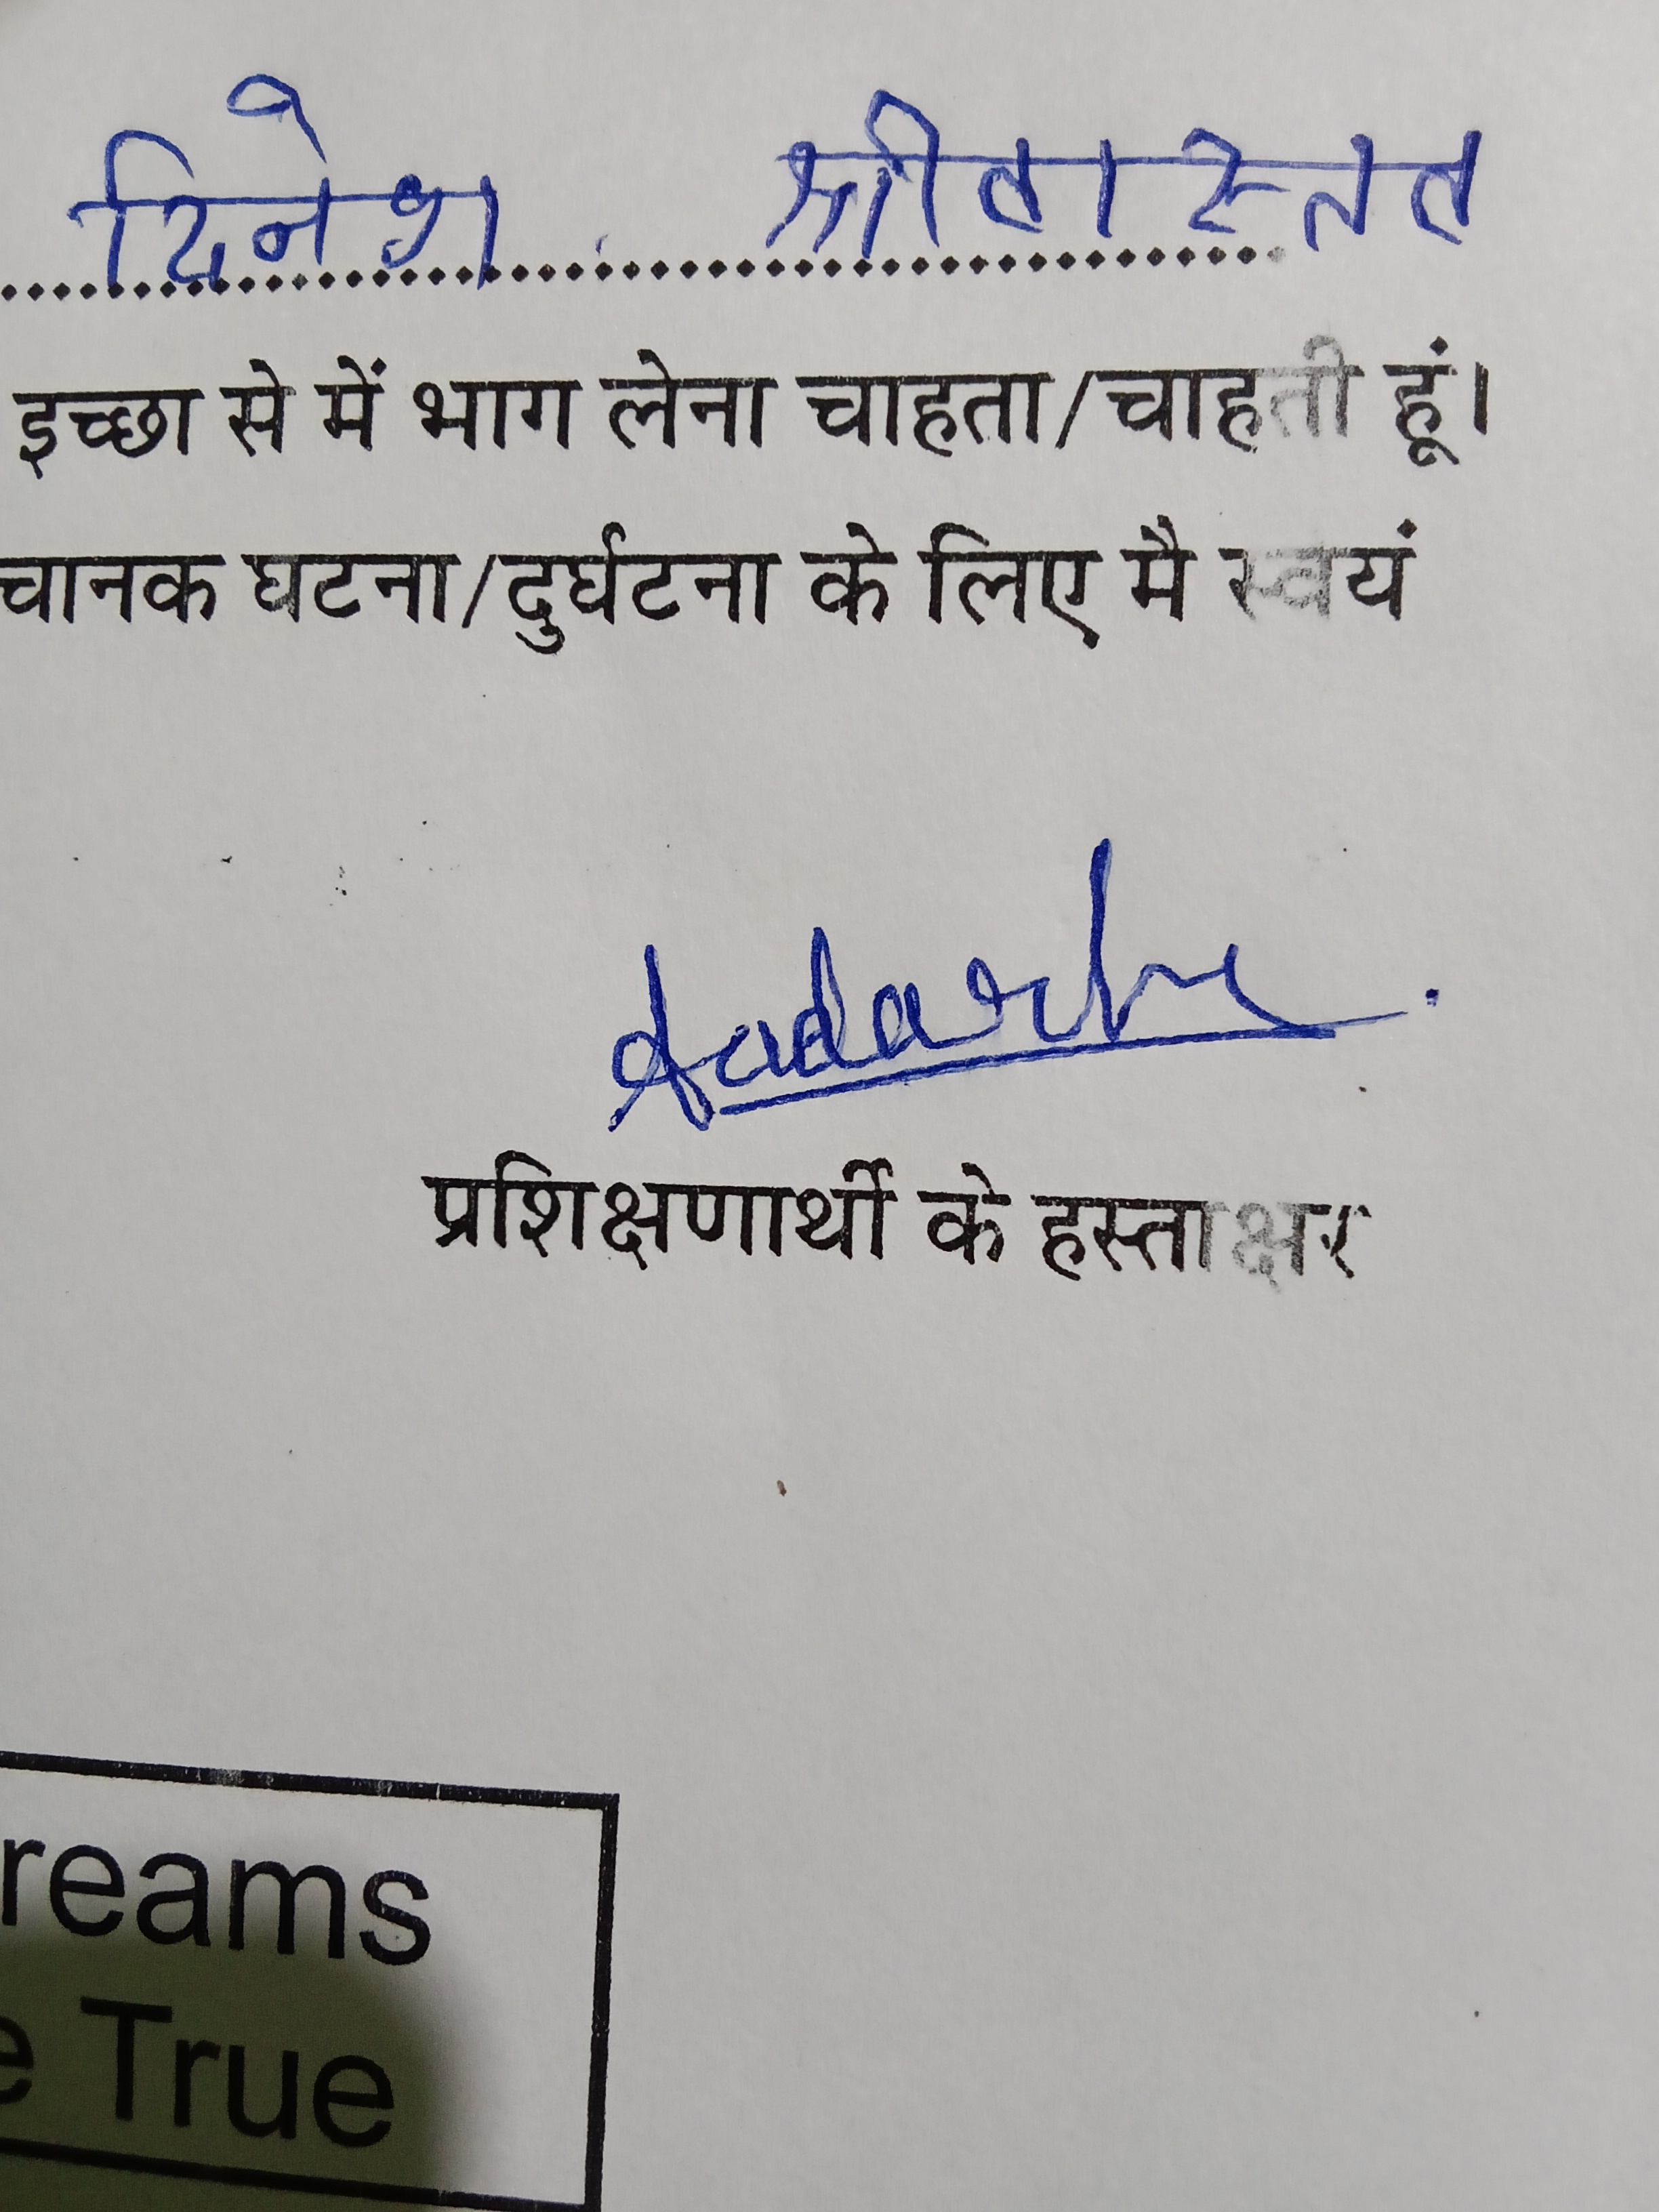 दिनेश श्रीवास्तव
इच्छा से में भाग लेना चाहता/चाहती हूं।
चानक घटना/दुर्घटना के लिए मै स्वयं
Aadarsh
प्रशिक्षणार्थी के हस्ताक्षर
reams
e True